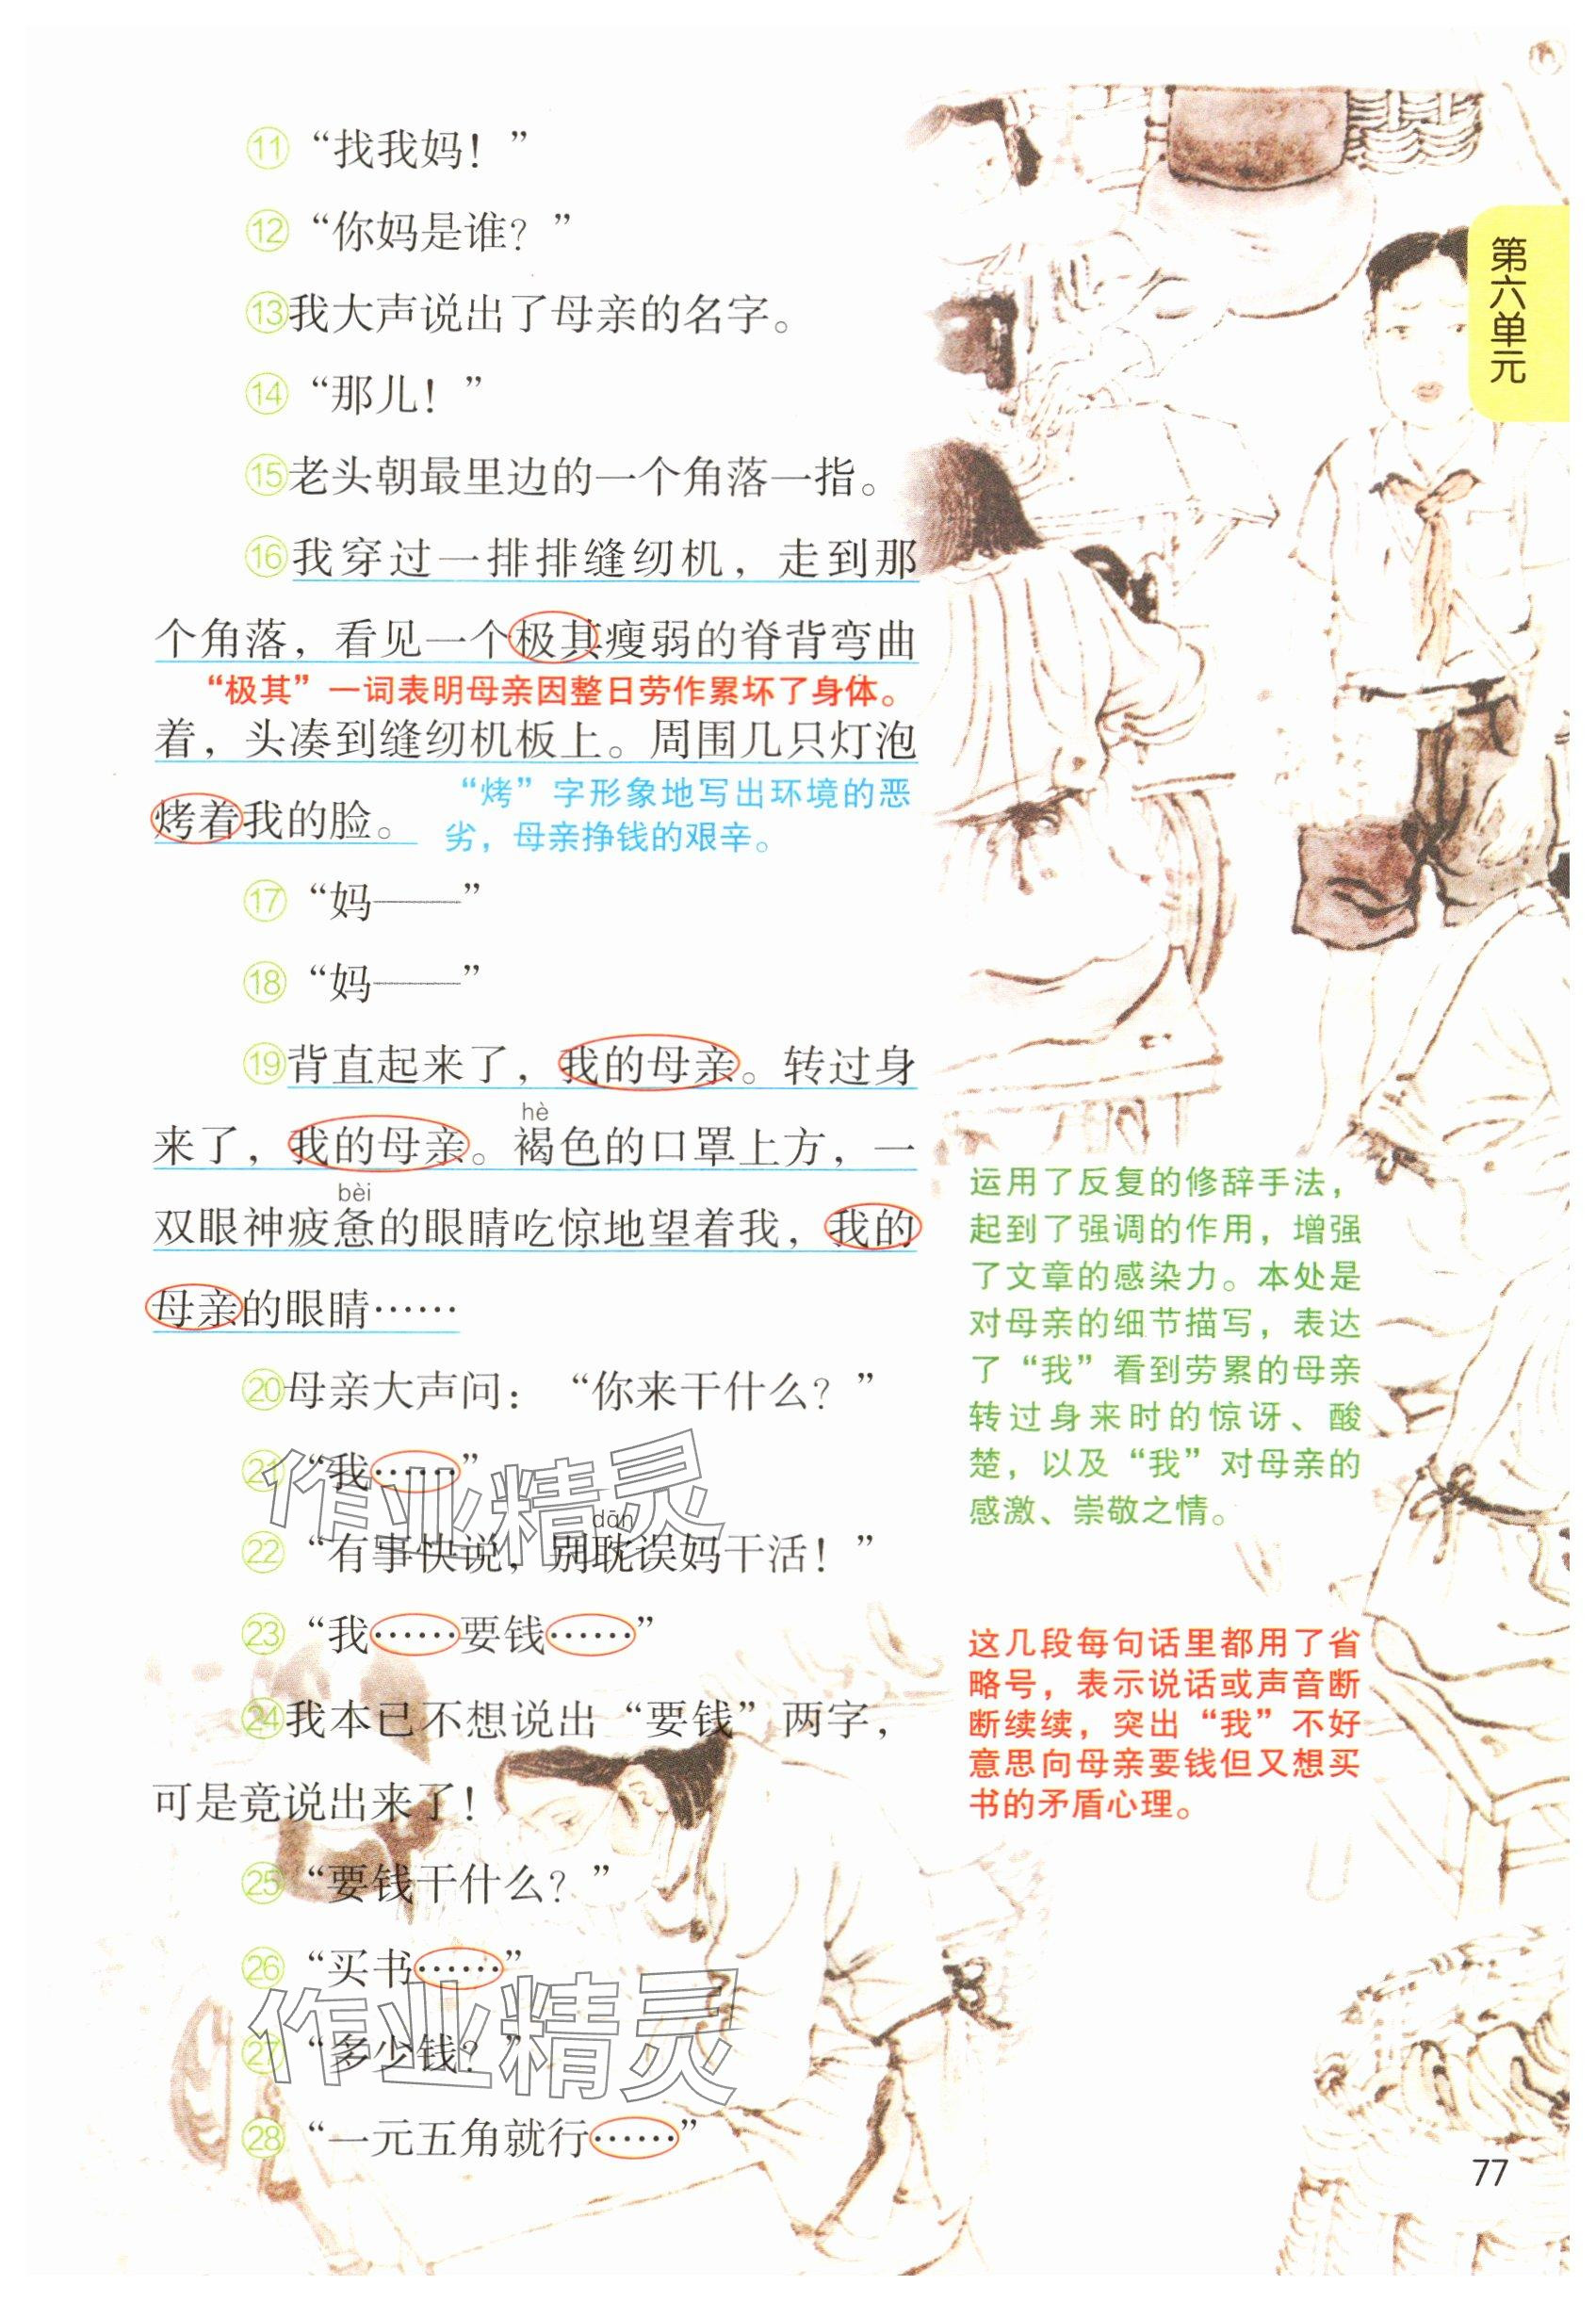 ⑪“找我妈！”
⑫“你妈是谁？”
⑬我大声说出了母亲的名字。
⑭“那儿！”
⑮老头朝最里边的一个角落一指。
⑯我穿过一排排缝纫机，走到那
个角落，看见一个极其瘦弱的脊背弯曲
“极其”一词表明母亲因整日劳作累坏了身体。
着，头凑到缝纫机板上。周围几只灯泡
烤着我的脸。
“烤”字形象地写出环境的恶
劣，母亲挣钱的艰辛。
⑰“妈——”
⑱“妈——”
⑲背直起来了，我的母亲。转过身
hè
来了，我的母亲。褐色的口罩上方，一
bèi
双眼神疲惫的眼睛吃惊地望着我，我的
母亲的眼睛……
运用了反复的修辞手法，
起到了强调的作用，增强
了文章的感染力。本处是
对母亲的细节描写，表达
了“我”看到劳累的母亲
转过身来时的惊讶、酸
楚，以及“我”对母亲的
感激、崇敬之情。
⑳母亲大声问：“你来干什么？”
㉑“我……”
dān
㉒“有事快说，别耽误妈干活！”
㉓“我……要钱……”
㉔我本已不想说出“要钱”两字，
可是竟说出来了！
这几段每句话里都用了省
略号，表示说话或声音断
断续续，突出“我”不好
意思向母亲要钱但又想买
书的矛盾心理。
㉕“要钱干什么？”
㉖“买书……”
㉗“多少钱？”
㉘“一元五角就行……”
第六单元
77
作业精灵
作业精灵